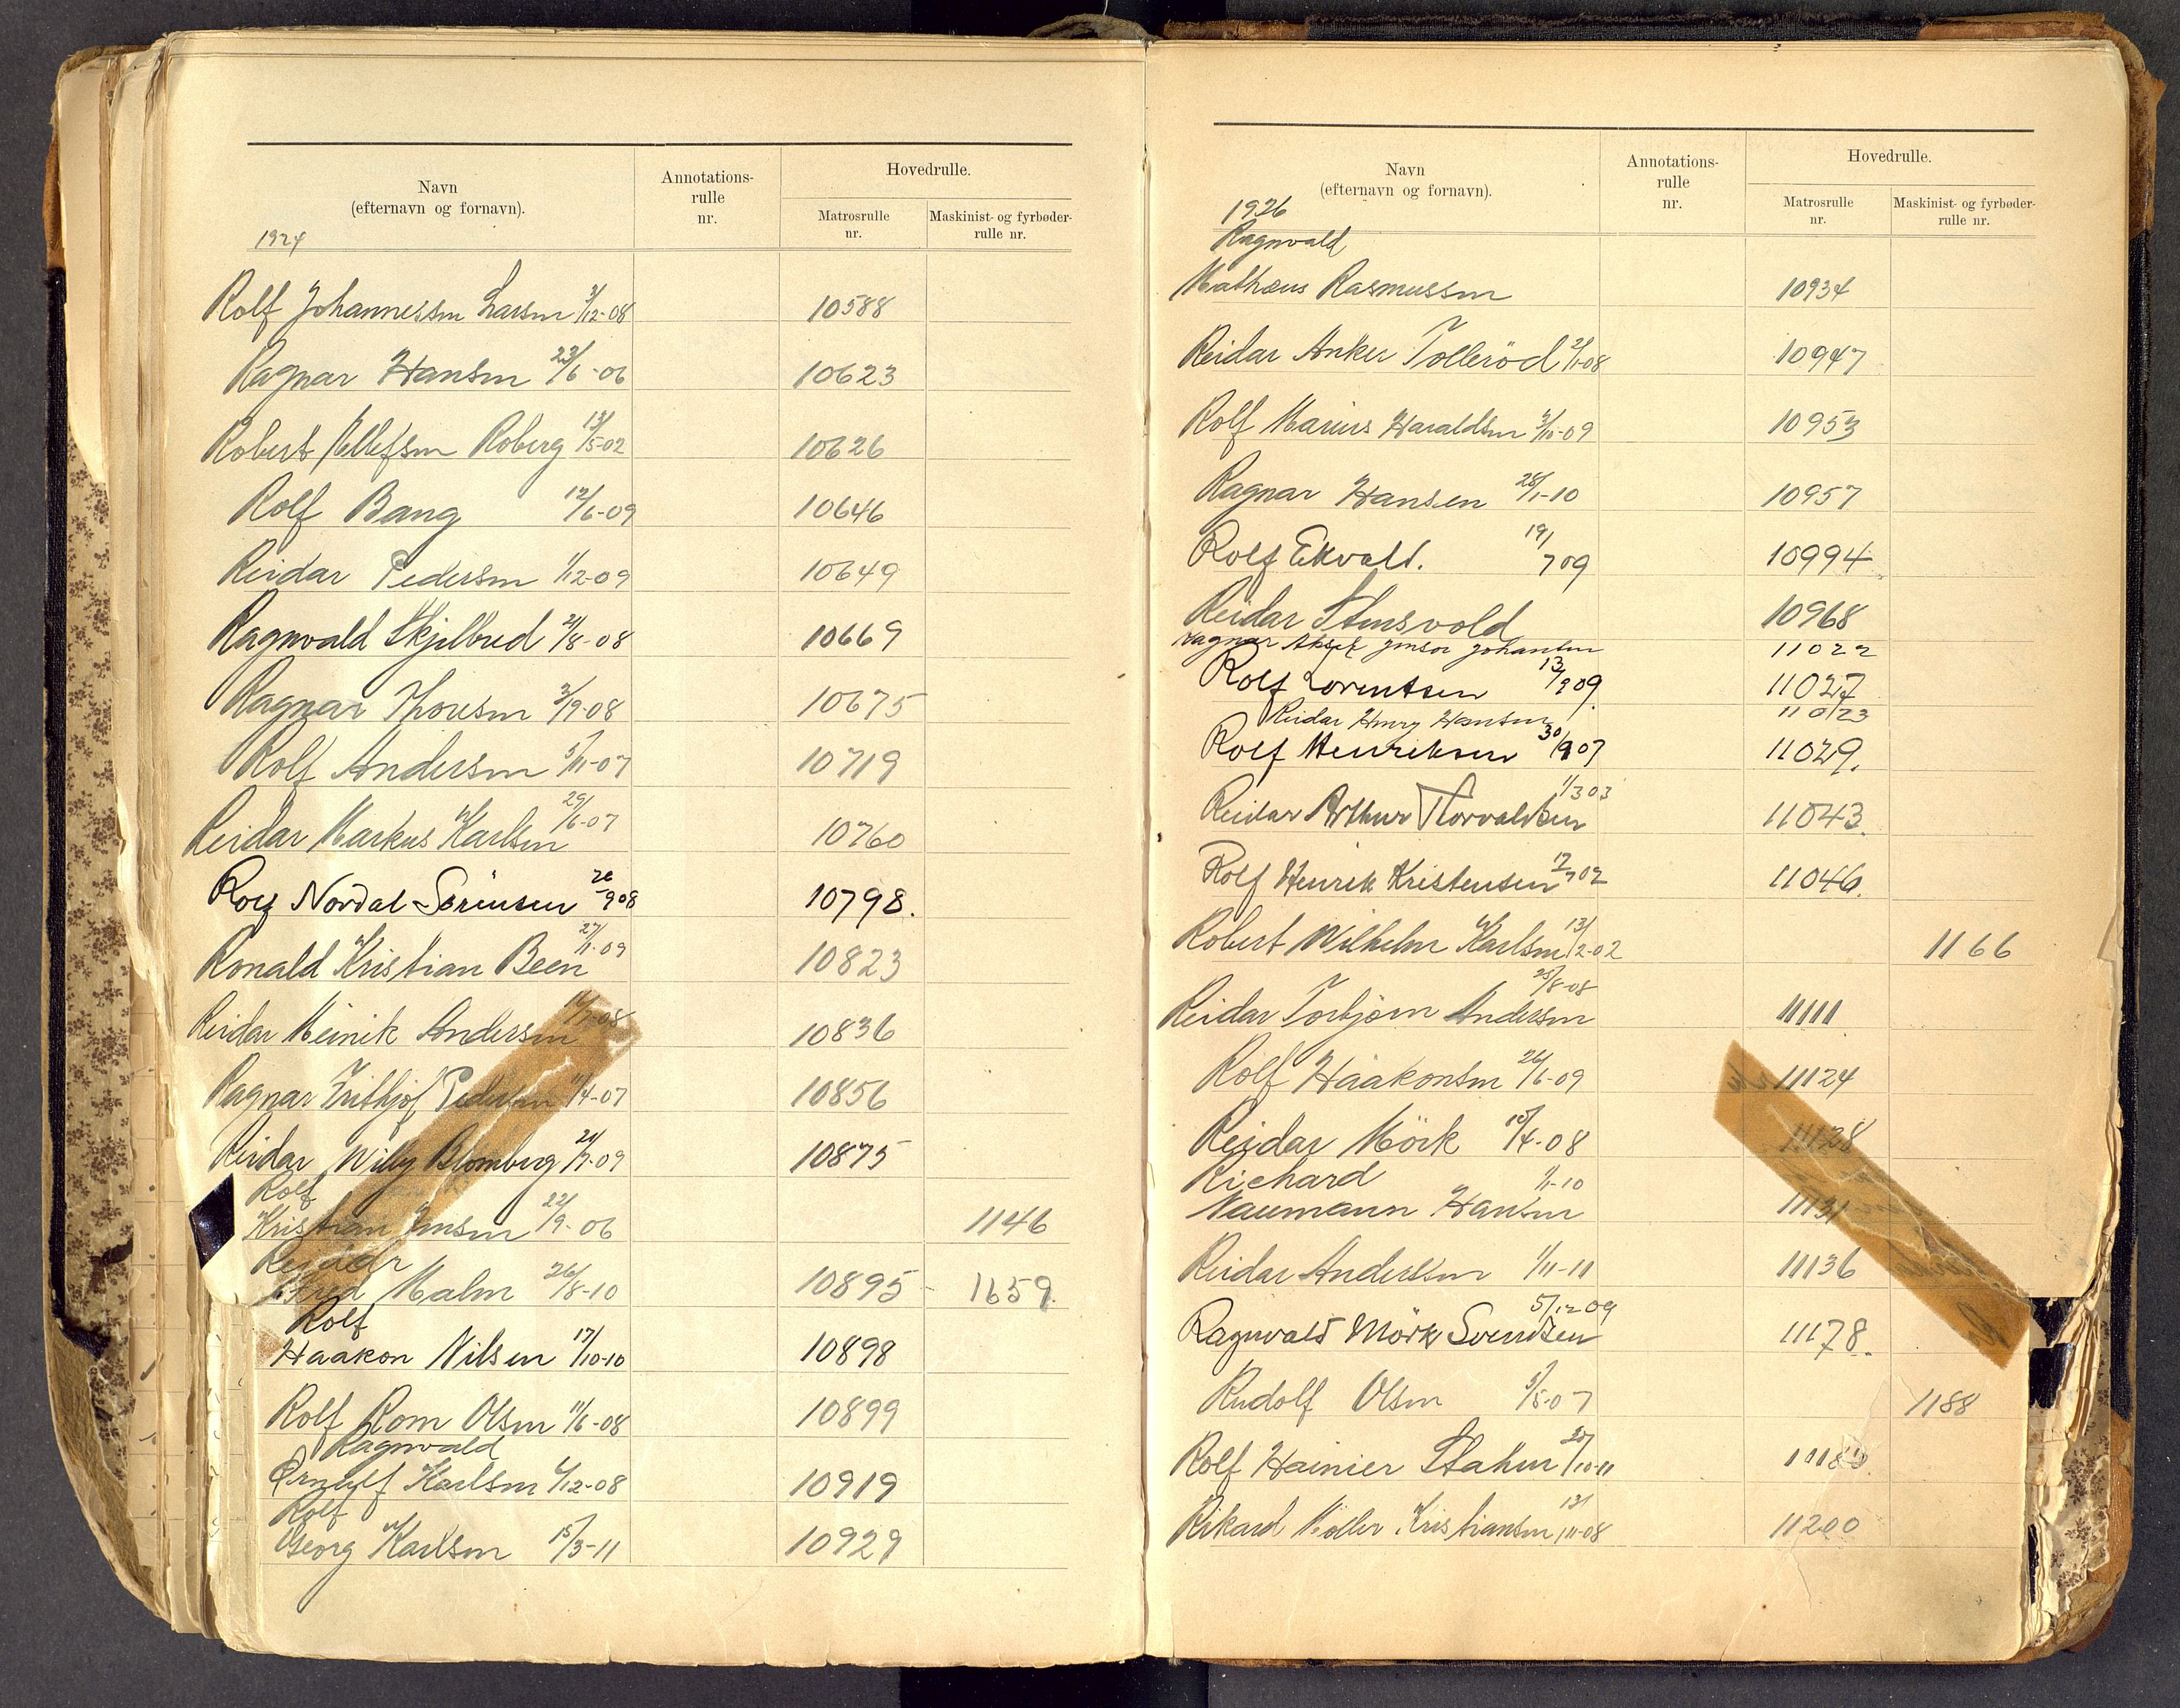 Navn
(efternavn og fornavn).
Annotations-
rulle
nr.
Hovedrulle.
Matrosrulle
nr.
Maskinist- og fyrbøder-
rulle nr.
1924
Rolf Johannessen Larsen 3/12-08 10588
Ragnar Hansen 23/6-06 10623
Robert Ellefsen Roberg 13/5-02 10626
Rolf Bang 12/6-09 10646
Reidar Pedersen 1/12-09 10649
Ragnvald Skjelbred 21/8-08 10669
Ragnar Thoresen 3/9-08 10675
Rolf Andersen 5/11-07 10719
Reidar Markus Karlsen 29/6-07 10760
Rolf Nordal-Sörensen 20/9 08 10798.
Ronald Kristian Been 27/11-09 10823
Reidar Meinik Andersen 10836
Ragnar Frithjof Pedersen 11/4-07 10856
Reidar Willy Blomberg 21/7-09 10875
Rolf
Kristian Jensen 22/9-06 1146
Reidar
Alfred Malm 26/8-10 10895 - 1659.
Rolf
Haakon Nilsen 17/10-10 10898
Rolf Rom Olsen 11/6-08 10899
Ragnvald
Ørnulf Karlsen 6/12-08 10919
Rolf
Georg Karlsen 15/3-11 10929
Navn
(efternavn og fornavn).
Annotations-
rulle
nr.
Hovedrulle.
Matrosrulle
nr.
Maskinist- og fyrbøder-
rulle nr.
1926
Ragnvald
Mathæus Rasmussen 10934
Reidar Anker Tolleröd 2/1-08 10947
Rolf Marius Haraldsen 3/10-09 10953
Ragnar Hansen 28/1-10 10957
Rolf Ekvald. 19/7 09 10994
Reidar Stensvold 10968
Ragnar Aksel Jensen Johansen 11022
Rolf Lorentsen 13/9 09. 11027
Reidar Henry Hansen 11023
Rolf Henriksen 30/9 07 11029.
Reidar Arthur Thorvaldsen 1/3 03 11043.
Rolf Henrik Kristensen 12/7 02 11046.
Robert Wilhelm Karlsen 13/2-02 1166
Reidar Torbjørn Andersen 25/8-08 11111
Rolf Haakonsen 26/6-09 11124
Reidar Mörk 10/4-08 11128
Richard 1/1-10
Naumann Hansen 11131
Reidar Anderssen 1/11-11 11136
Ragnvald Mörk Svendsen 5/12 09 11178.
Rudolf Olsen 5/5-07 1188
Rolf Hainier 20/10-11
Rikard Möller Kristiansen 13/11-08 11200